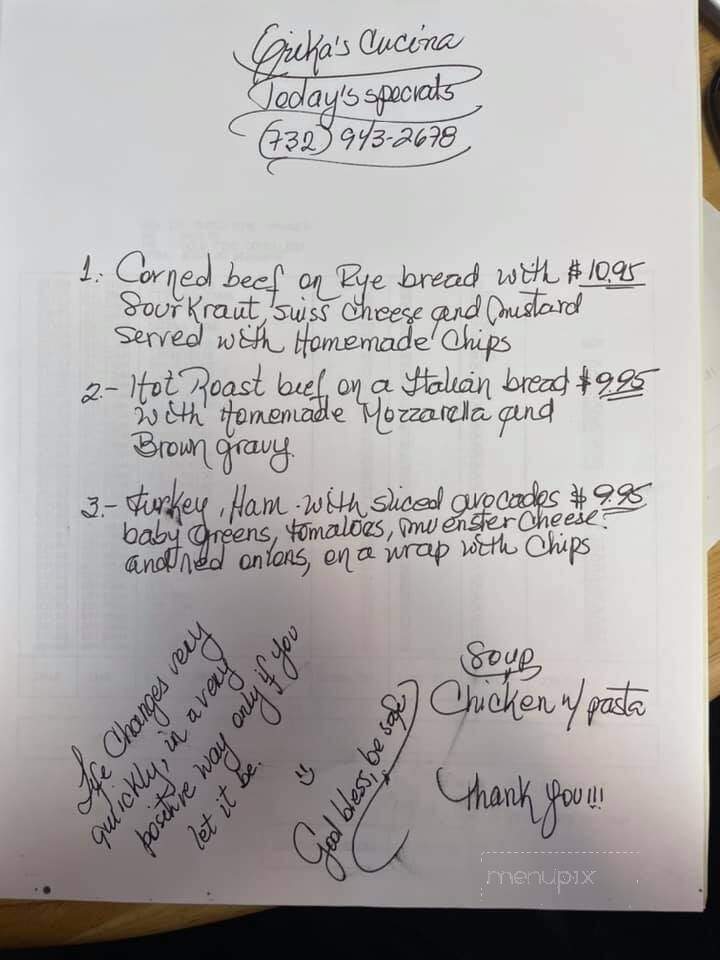 Erika's Cucina
Today's specials
(732) 943-2678
1.- Corned beef on Rye bread with $10.95
Sourkraut, suiss cheese and mustard
served with Homemade Chips
2.- Hot Roast beef on a Italian bread $9.95
with Homemade Mozzarella and
Brown gravy.
3.- turkey, Ham with sliced avocados $9.95
baby greens, tomatoes, muenster cheese.
and red onions, on a wrap with Chips
Life Changes very
quickly, in a very
positive way only if you
let it be.
:)
God bless, be safe
Soup
Chicken w/ pasta
Thank you!!!
menupix